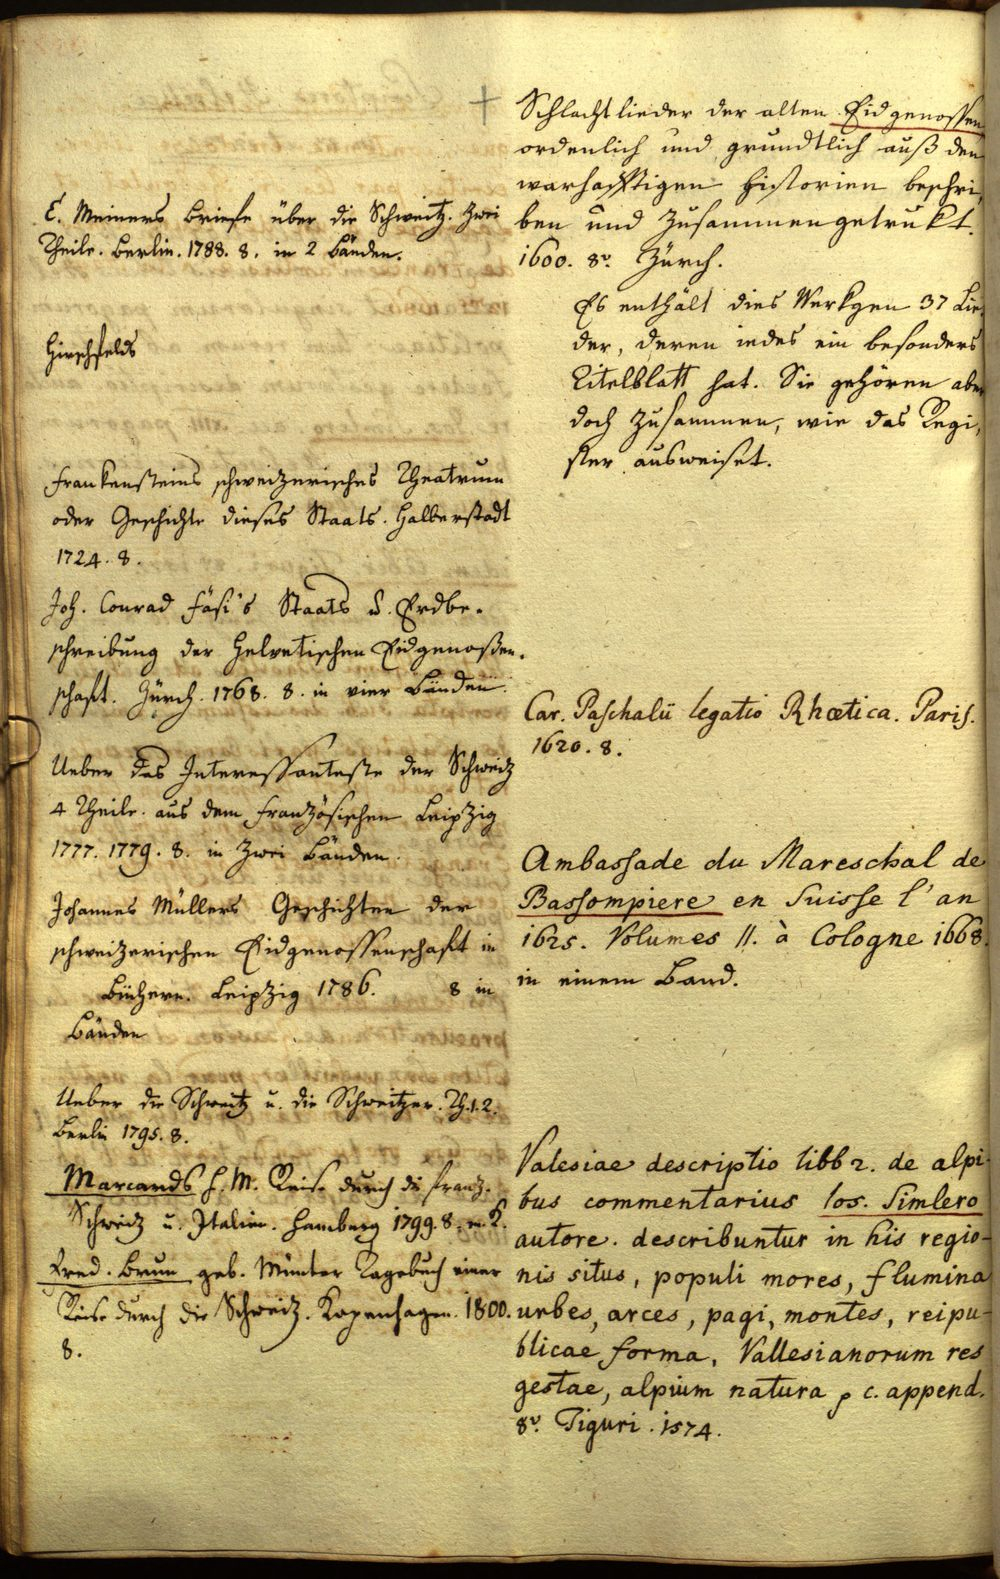 C. Meiners Briefe über die Schweitz. Zwei
Theile. Berlin. 1788. 8. in 2 Bänden.
Hirschfelds
Frankensteins schweitzerisches Theatrum
oder Geschichte dieses Staats. Halberstadt
1724. 8.
Joh. Conrad Fäsi's Staats u. Erdbe-
schreibung der Helvetischen Eidgenoßen-
schaft. Zürch. 1768. 8. in vier Bänden.
Ueber das Interessanteste der Schweitz
4 Theile. aus dem französischen Leipzig
1777. 1779. 8. in Zwei Bänden.
Johannes Müllers Geschichten der
schweizerischen Eidgenossenschaft in
Büchern. Leipzig 1786. 8 in
Bänden
Ueber die Schweitz u. die Schweitzer. Th. 1. 2.
Berlin 1795. 8.
Marcards H. M. Reise durch die franz.
Schweiz u. Italien. Hamburg 1799. 8. m. K.
Fred. Brun geb. Münter Tagebuch einer
Reise durch die Schweiz. Kopenhagen. 1800.
8.
+ Schlachtlieder der alten Eidgenossen
ordenlich und grundtlich auß den
warhafftigen Historien beschri,
ben und zusammengetrukt.
1600. 8v. Zürch.
Es enthält dies Werkgen 37 Lie,
der, deren iedes ein besonders
Titelblatt hat. Sie gehören aber
doch zusammen, wie das Regi,
ster ausweiset.
Car. Paschalii legatio Rhœtica. Paris.
1620. 8.
Ambassade du Mareschal de
Bassompiere en Suisse l'an
1625. Volumes II. à Cologne 1668.
in einem Band.
Valesiae descriptio libb 2. de alpi-
bus commentarius Ios. Simlero
autore. describuntur in his regio-
nis situs, populi mores, flumina
urbes, arces, pagi, montes, reipu-
blicae forma, Vallesianorum res
gestae, alpium natura p c. append.
8v. Tiguri. 1574.